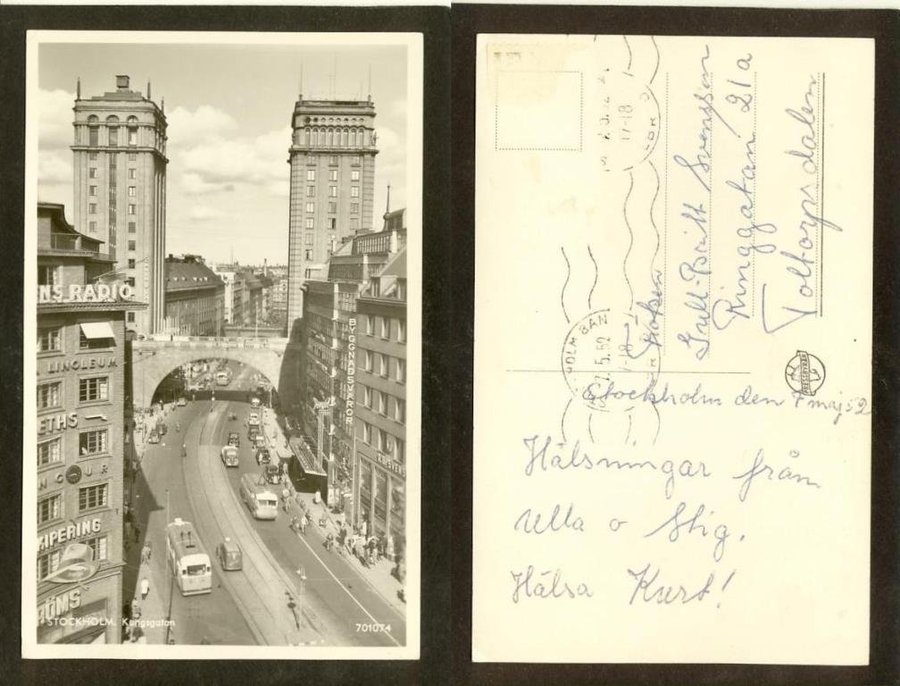 NS RADIO
LINOLEUM
ETHS
NGUR
KIPERING
ÖMS
BYGGNADSVAROR
STOCKHOLM. Kungsgatan
701074
17-18
HOLM BAN
7.5.52
Fröken
Gull-Britt Svensson
Ringgatan 21a
Toltorpsdalen
Stockholm den 7 maj 52
Hälsningar från
Ulla o Stig.
Hälsa Kurt!